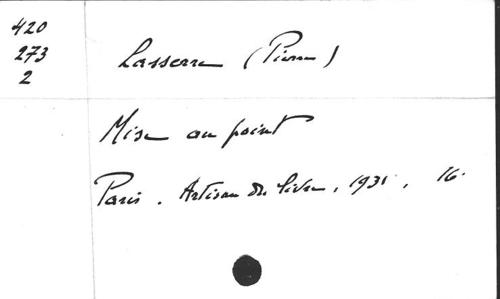 420
273
2
Lasserre (Pierre)
Mise au point
Paris. Artisan du livre, 1931, 16.